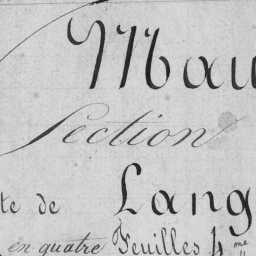 Mau
Section
te de Lang
en quatre Feuilles 4 me